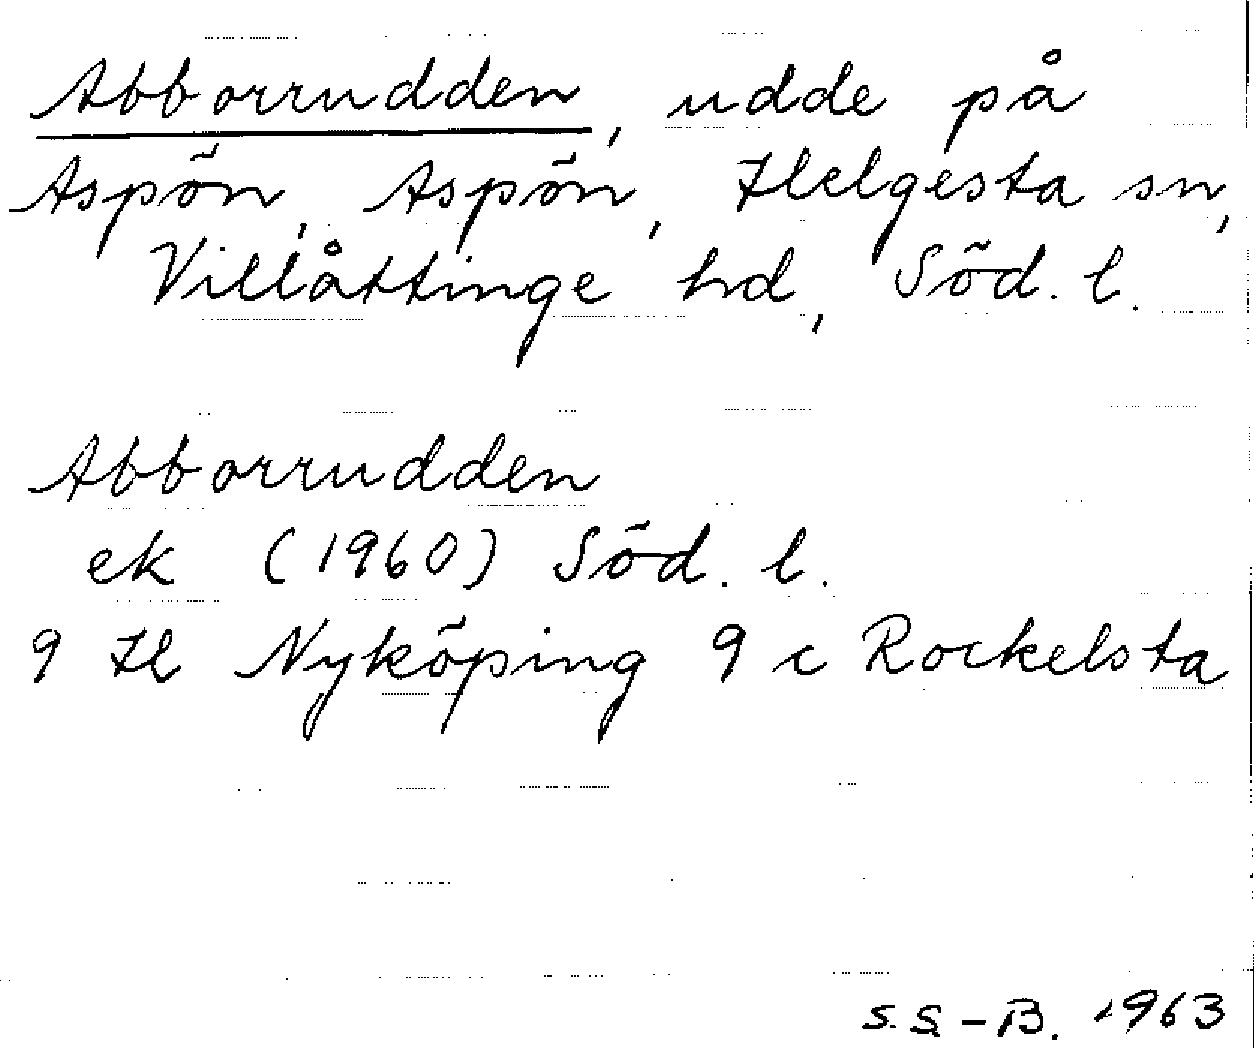 Abborrudden, udde på
Aspön, Aspön, Helgesta sn,
Villåttinge hd, Söd. l.
Abborrudden
ek (1960) Söd. l.
9 H Nyköping 9 c Rockelsta
S.S.-B. 1963